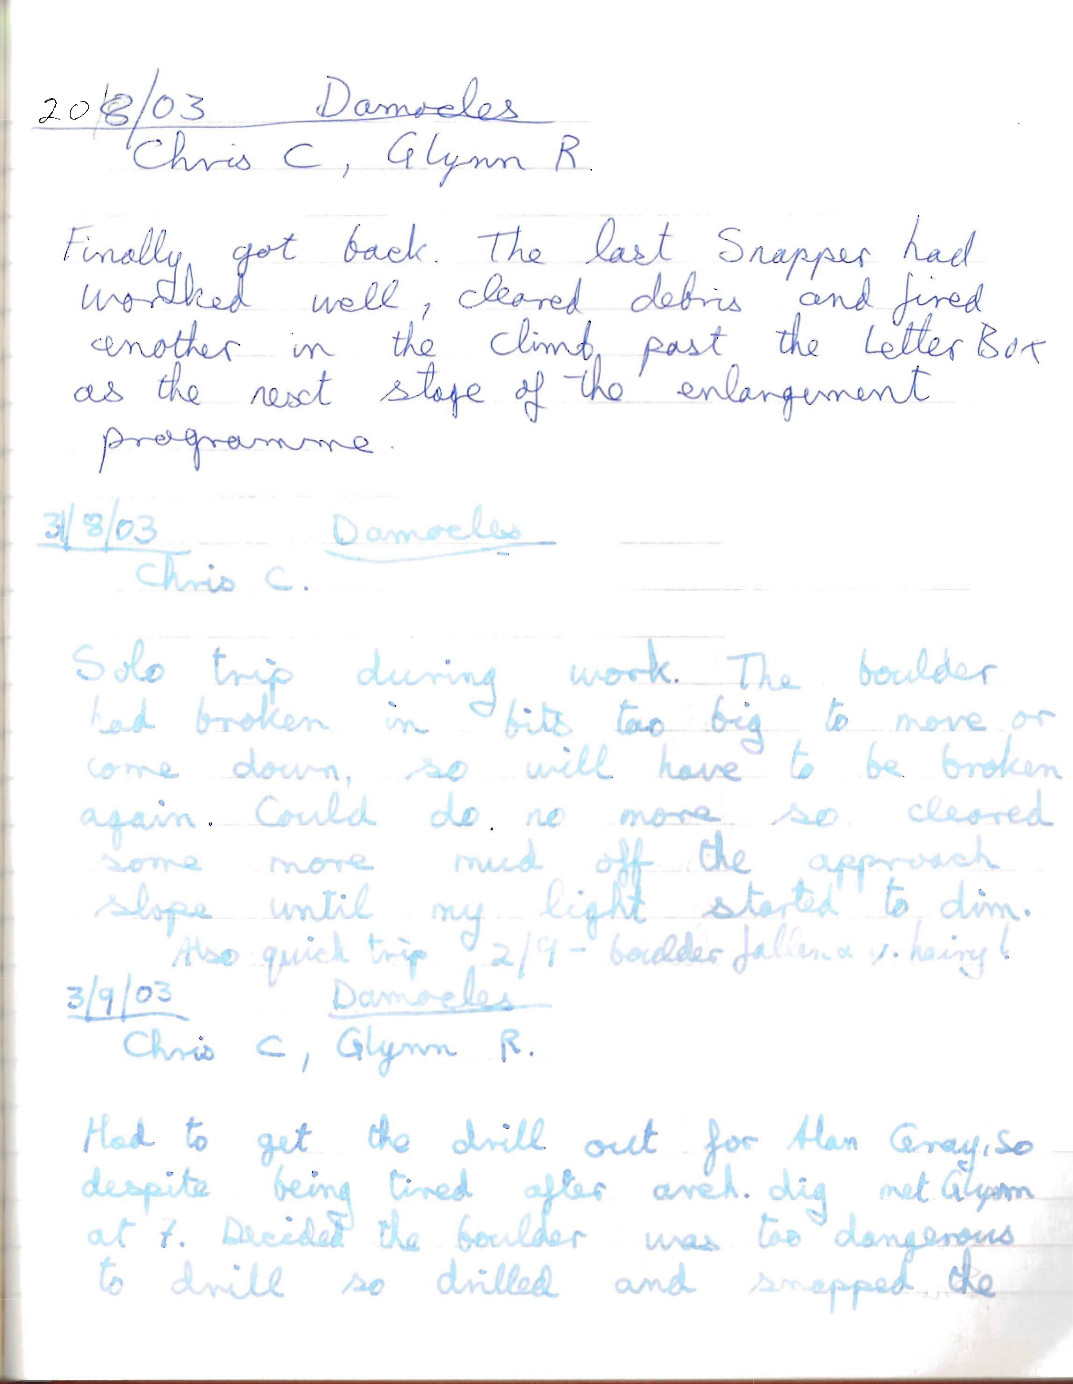 20/8/03 Damocles
Chris C, Glynn R.
Finally got back. The last Snapper had
worked well, cleared debris and fired
another in the climb past the Letter Box
as the next stage of the enlargement
programme.
31/8/03 Damocles
Chris C.
Solo trip during work. The boulder
had broken in bits too big to move or
come down, so will have to be broken
again. Could do no more so cleared
some more mud off the approach
slope until my light started to dim.
Also quick trip 2/9 - boulder fallen & v. hairy!
3/9/03 Damocles
Chris C, Glynn R.
Had to get the drill out for Alan Gray, so
despite being tired after arch. dig met Glynn
at 7. Decided the boulder was too dangerous
to drill so drilled and snapped the